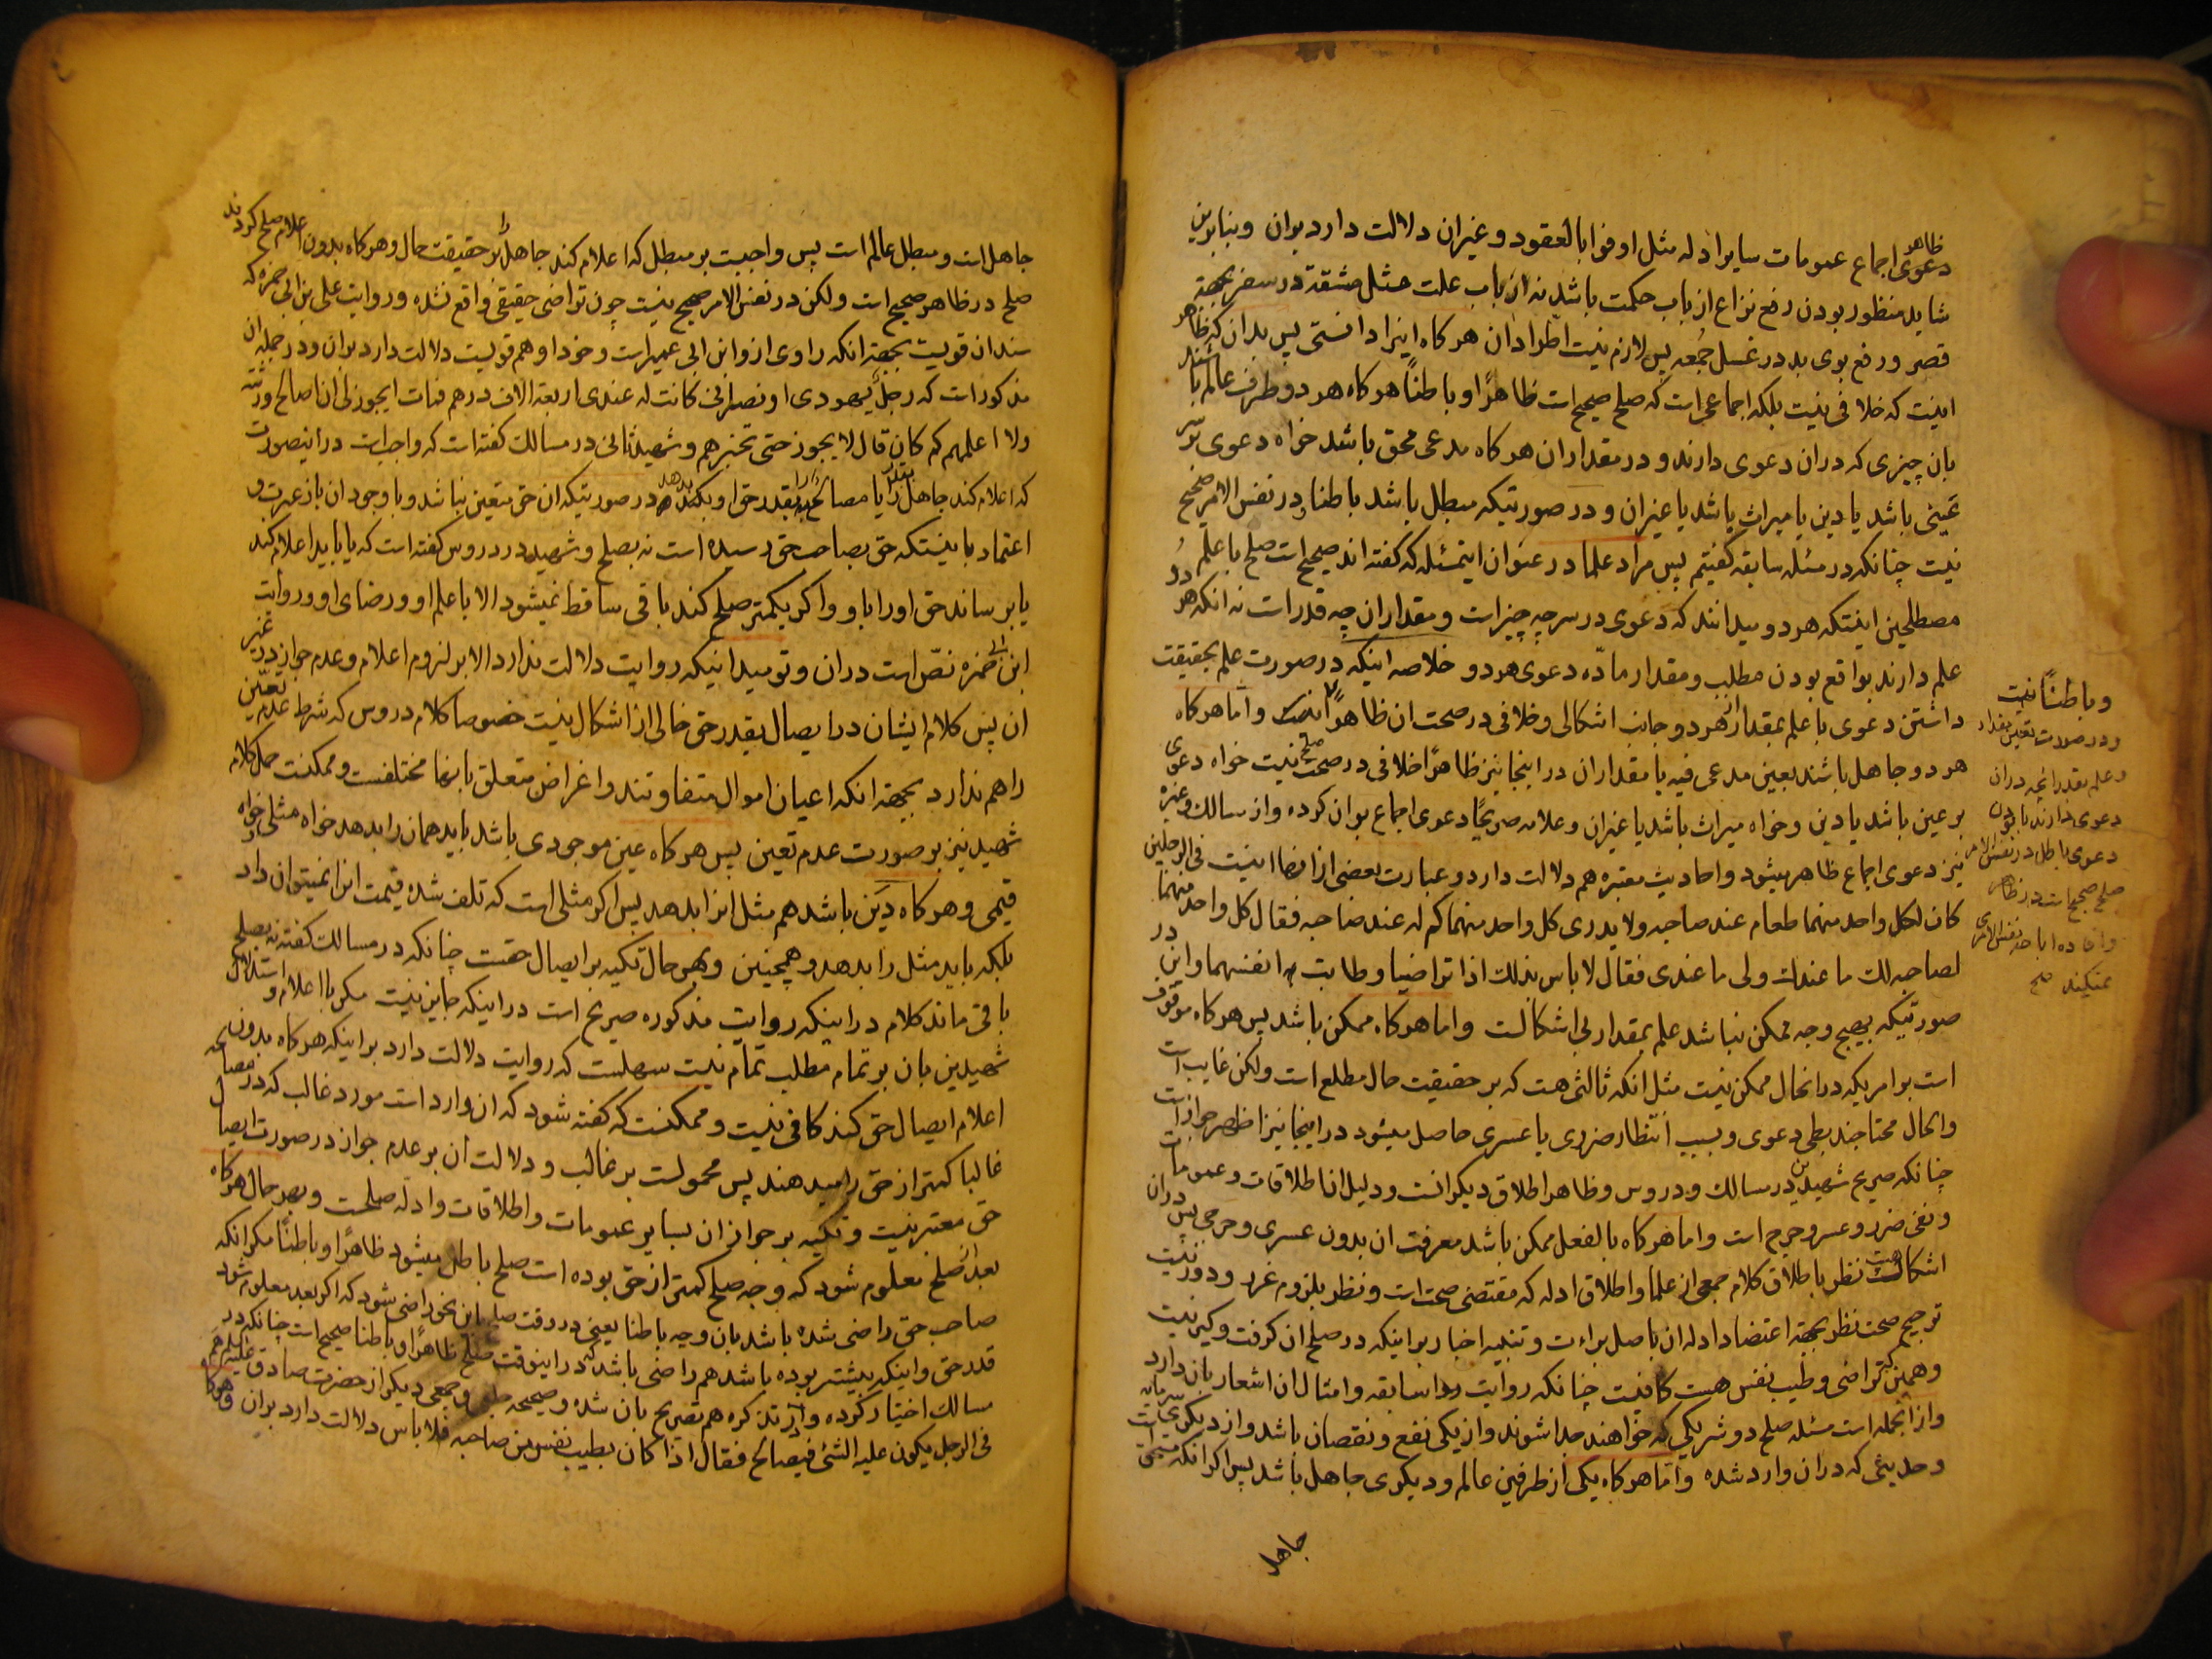 دعوی اجماع عمومات سایر ادله مثل اوفوا بالعقود و غیر ان دلالت دارد بران و بنابرین
شاید منظور بودن رفع نزاع از باب حکمت باشد نه از باب علت مثل مشقة در سفر بجهة
قصر و رفع بوی بد در غسل جمعه پس لازم نیست اطراد ان هرکاه اینرا دانستی پس بدان که ظاهر
اینست که خلافی نیست بلکه اجماعی است که صلح صحیح است ظاهرًا و باطنًا هرکاه هر دو طرف عالم باشند
بان چیزی که دران دعوی دارند و در مقدار ان هرکاه مدعی محق باشد خواه دعوی بر سر
عینی باشد یا دین یا میراث باشد یا غیر ان و در صورتیکه مبطل باشد باطنا و در نفس الامر صحیح
نیست چنانکه در مسئله سابقه کفتیم پس مراد علما در عنوان اینمسئله که کفته اند صحیح است صلح با علم
مصطلحین اینستکه هر دو میدانند که دعوی در سر چه چیز است و مقدار ان چه قدر است نه انکه هر دو
علم دارند بواقع بودن مطلب و مقدار مادّه دعوی هر دو خلاصه اینکه در صورت علم بحقیقت
داشتن دعوی با علم بمقدار از هر دو جانب اشکالی و خلافی در صحت ان ظاهرًا نیست و اما هرکاه
هر دو جاهل باشند بعین مدعی فیه یا مقدار ان در اینجا نیز ظاهرًا خلافی در صحت صلح نیست خواه دعوی
بر عین باشد یا دین و خواه میراث باشد یا غیر ان و علامه صریحًا دعوی اجماع بر ان کرده و از مسالک و غیره
نیز دعوی اجماع ظاهر میشود و احادیث معتبره هم دلالت دارد و عبارت بعضی از انها اینست فی الرجلین
کان لکل واحد منهما طعام عند صاحبه و لا یدری کل واحد منهما کم له عند صاحبه فقال کل واحد منهما
لصاحبه لک ما عندک ولی ما عندی فقال لا باس بذلک اذا تراضیا و طابت انفسهما و این در
صورتیکه بهیچ وجه ممکن نباشد علم بمقدار بی اشکالست و اما هرکاه ممکن باشد پس هرکاه موقوف
است بر امریکه در انحال ممکن نیست مثل انکه ثالثی هست که بر حقیقت حال مطلع است ولکن غایب است
و الحال محتاجند بطی دعوی و بسبب انتظار ضرری یا عسری حاصل میشود در اینجا نیز اظهر جواز است
چنانکه صریح شهیدین در مسالک و دروس و ظاهر اطلاق دیکرانست و دلیل انا طلاقات و عمومات
و نفی ضرر و عسر و حرج است و اما هرکاه بالفعل ممکن باشد معرفت ان بدون عسری و حرجی پس دران
اشکال هست نظر باطلاق کلام جمعی از علما و اطلاق ادله که مقتضی صحت است و نظر بلزوم غرر و دور نیست
ترجیح صحت نظر بجهة اعتضاد ادله ان باصل براءت و تنبیه اخبار بر اینکه در صلح ان کرفت و کیر نیست
و همین که تراضی و طیب نفس هست کافیست چنانکه روایت سابقه و امثال ان اشعار بان دارد
و از انجمله است مسئله صلح دو شریکی که خواهند جدا شوند و از یکی نفع و نقصان باشد و از دیکری سرمایه است
و حدیثی که دران وارد شده و اما هرکاه یکی از طرفین عالم و دیکری جاهل باشد پس اکر انکه مستحق
جاهل
و باطنًا نیست
و در صورت تعین مقدار
و علم بقدر انچه دران
دعوی دارند با بودن
دعوی باطل در نفس الامر
صلح صحیح است در ظاهر
و افاده اباحه نفس الامری
نمیکند صح
جاهل است و مبطل عالم است پس واجبست بر مبطل که اعلام کند جاهل را بر حقیقت حال و هرکاه بدون اعلام صلح کردند
صلح در ظاهر صحیح است ولکن در نفس الامر صحیح نیست چون تراضی حقیقی واقع نشده و روایت علی بن ابی حمزه که
سند ان قویست بجهة انکه راوی از و ابن ابی عمیر است و خود او هم قویست دلالت دارد بران و در جمله ان
مذکور است که رجل یهودی او نصرانی کانت له عندی اربعة الاف درهم فمات ایجوز لی ان اصالح ورثته
و لا اعلمهم کم کان قال لا یجوز حتی تخبرهم و شهید ثانی در مسالک کفته است که واجب است در اینصورت
که اعلام کند جاهل را یا مصالحه بقدر حق او بکند در صورتیکه ان حق متعین نباشد و با وجود ان باز عبرت و
اعتماد باینستکه حق بصاحب حق رسیده است نه بصلح و شهید در دروس کفته است که یا باید اعلام کند
یا برساند حق او را باو و اکر بکمتر صلح کند باقی ساقط نمیشود الا با علم او و رضای او و روایت
ابن ابی حمزه نصّ است دران و تو میدانیکه روایت دلالت ندارد الا بر لزوم اعلام و عدم جواز در غیر
ان پس کلام ایشان در ایصال بقدر حق خالی از اشکال نیست خصوصا کلام دروس که شرط عدم تعیّن
را هم ندارد بجهة انکه اعیان اموال متفاوتند و اغراض متعلق بانها مختلفست و ممکنست حمل کلام
شهید نیز بر صورت عدم تعین پس هرکاه عین موجودی باشد باید همان را بدهد خواه مثلی خواه
قیمی و هرکاه دَین باشد هم مثل انرا بدهد پس اکر مثلی است که تلف شده قیمت انرا نمیتوان داد
بلکه باید مثل را بدهد و همچنین و بهر حال تکیه بر ایصال حقست چنانکه در مسالک کفته نه بصلح
باقی ماند کلام در اینکه روایت مذکوره صریح است در اینکه جایز نیست مکر با اعلام و استدلال
شهیدین بان بر تمام مطلب تمام نیست سهلست که روایت دلالت دارد بر اینکه هرکاه بدون
اعلام ایصال حق کند کافی نیست و ممکنست که کفته شود که ان وارد است مورد غالب که در مصالحه
غالبا کمتر از حق را میدهند پس محمولست بر غالب و دلالت ان بر عدم جواز در صورت ایصال
حق معتبر نیست و تکیه بر جواز ان بسایر عمومات و اطلاقات و ادلّه صلحست و بهر حال هرکاه
بعد از صلح معلوم شود که وجه صلح کمتر از حق بوده است صلح باطل میشود ظاهرًا و باطنًا مکر انکه
صاحب حق راضی شده باشد بان وجه باطنا یعنی در وقت صلح بان نحو راضی شود که اکر بعد معلوم شود
قدر حق و اینکه بیشتر بوده باشد هم راضی باشد که در اینوقت صلح ظاهرًا و باطنا صحیح است چنانکه در
مسالک اختیار کرده و از تذکره هم تصریح بان شده و صحیحه حلبی و جمعی دیکر از حضرت صادق علیه السلام
فی الرجل یکون علیه الشئ فیصالح فقال اذا کان بطیب نفس من صاحبه فلا باس دلالت دارد بران و هرکاه